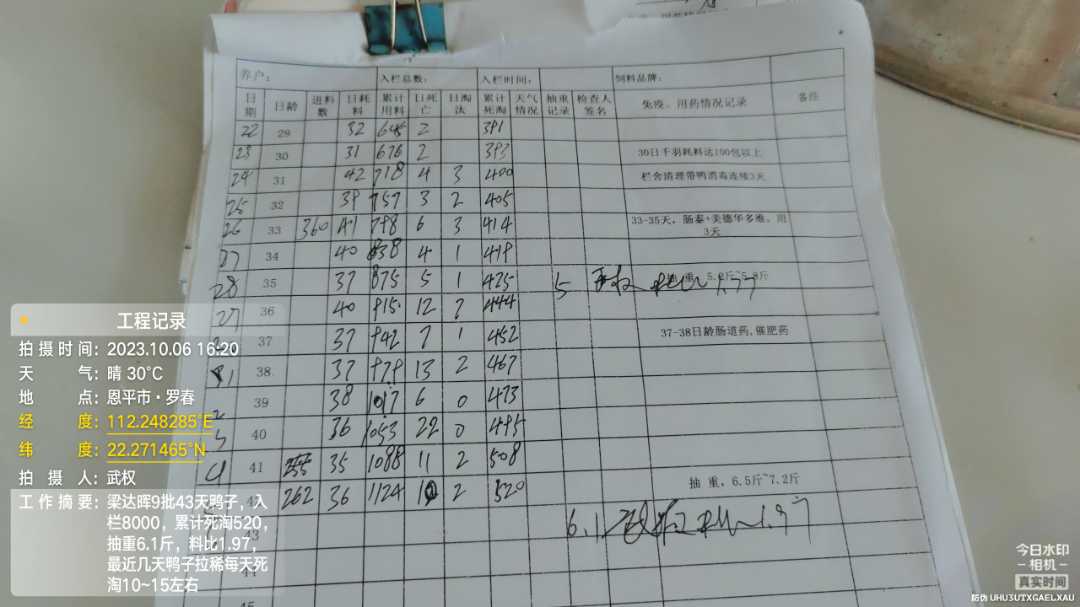 养户： 入栏总数： 入栏时间： 饲料品牌：
日期 日龄 进料数 日耗料 累计用料 日死亡 日淘汰 累计死淘 天气情况 抽重记录 检查人签名 免疫、用药情况记录 备注
22 29 32 645 2 391
23 30 31 676 2 393 30日千羽耗料达100包以上
24 31 42 718 4 3 400 栏舍清理带鸭消毒连续3天
25 32 39 757 3 2 405
26 33 360 41 798 6 3 414 33-35天，肠泰+美德华多维，用3天
27 34 40 838 4 1 419
28 35 37 875 5 1 425 5
36 40 915 12 7 444
37 37 942 7 1 452 37-38日龄肠道药,催肥药
38 37 979 13 2 467
39 38 1017 6 0 473
40 36 1053 22 0 495
4 41 255 35 1088 11 2 508
262 36 1124 10 2 520 抽 重，6.5斤~7.2斤
6.1 1.97
44
45
工程记录
拍摄时间：2023.10.06 16:20
天 气：晴 30°C
地 点：恩平市·罗春
经 度：112.248285°E
纬 度：22.271465°N
拍 摄 人：武权
工作摘要：梁达晖9批43天鸭子，入
栏8000，累计死淘520，
抽重6.1斤，料比1.97，
最近几天鸭子拉稀每天死
淘10~15左右
今日水印
-相机-
真实时间
防伪 UHU3UTXGAELXAU